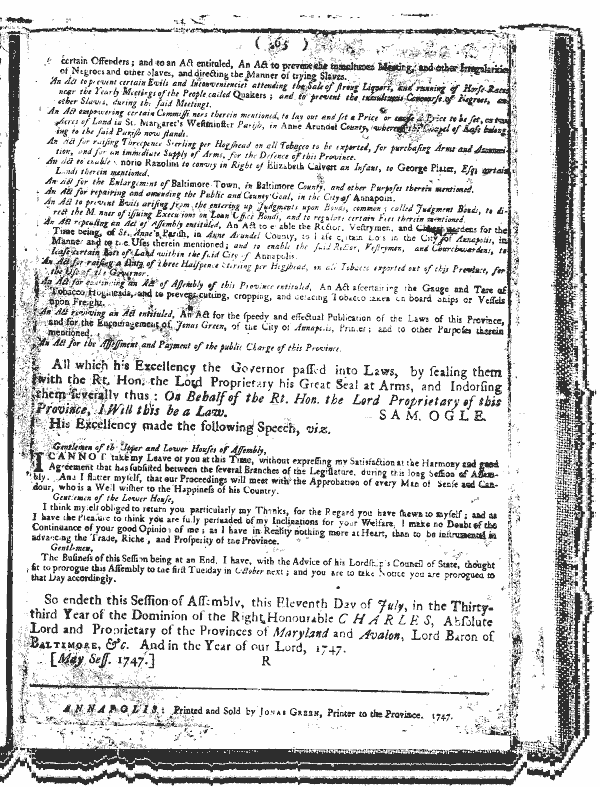 ( 65 )
certain Offenders; and to an Act entituled, An Act to prevent the tumultuous Meeting, and other Irregularities
of Negroes and other Slaves, and directing the Manner of trying Slaves.
An Act to prevent certain Evils and Inconveniencies attending the Sale of strong Liquors, and running of Horse-Races
near the Yearly Meetings of the People called Quakers; and to prevent the tumultuous Concourse of Negroes, and
other Slaves, during the said Meetings.
An Act empowering certain Commissioners therein mentioned, to lay out and set a Price or cause a Price to be set, on two
Acres of Land in St. Margaret's Westminster Parish, in Anne Arundel County, whereon the Chapel of Ease belong-
ing to the said Parish now stands.
An Act for raising Threepence Sterling per Hogshead on all Tobacco to be exported, for purchasing Arms and Ammuni-
tion, and for an immediate Supply of Arms, for the Defence of this Province.
An Act to enable Razolini to convey in Right of Elizabeth Calvert an Infant, to George Plater, Esq; certain
Lands therein mentioned.
An Act for the Enlargement of Baltimore-Town, in Baltimore County, and other Purposes therein mentioned.
An Act for repairing and amending the Public and County Goal, in the City of Annapolis.
An Act to prevent Evils arising from the entering up Judgments upon Bonds, commonly called Judgment Bonds, to di-
rect the Manner of issuing Executions on Loan Office Bonds, and to regulate certain Fees therein mentioned.
An Act repealing an Act of Assembly entituled, An Act to enable the Rector, Vestrymen, and Church-wardens for the
Time being, of St. Anne's Parish, in Anne Arundel County, to lease certain Lots in the City of Annapolis, in
Manner and to the Uses therein mentioned; and to enable the said Rector, Vestrymen, and Churchwardens, to
lease certain Lots of Land within the said City of Annapolis.
An Act for raising a Duty of Three Halfpence Sterling per Hogshead, on all Tobacco exported out of this Province, for
the Use of the Governor.
An Act for continuing an Act of Assembly of this Province entituled, An Act ascertaining the Gauge and Tare of
Tobacco Hogsheads, and to prevent cutting, cropping, and defacing Tobacco taken on board Ships or Vessels
upon Freight.
An Act reviving an Act entituled, An Act for the speedy and effectual Publication of the Laws of this Province,
and for the Encouragement of Jonas Green, of the City of Annapolis, Printer; and to other Purposes therein
mentioned.
An Act for the Assessment and Payment of the public Charge of this Province.
All which his Excellency the Governor passed into Laws, by sealing them
with the Rt. Hon. the Lord Proprietary his Great Seal at Arms, and Indorsing
them severally thus: On Behalf of the Rt. Hon. the Lord Proprietary of this
Province, I Will this be a Law. SAM. OGLE.
His Excellency made the following Speech, viz.
Gentlemen of the Upper and Lower Houses of Assembly,
I CANNOT take my Leave of you at this Time, without expressing my Satisfaction at the Harmony and good
Agreement that has subsisted between the several Branches of the Legislature, during this long Session of Assem-
bly. And I flatter myself, that our Proceedings will meet with the Approbation of every Man of Sense and Can-
dour, who is a Well wisher to the Happiness of his Country.
Gentlemen of the Lower House,
I think myself obliged to return you particularly my Thanks, for the Regard you have shewn to myself; and as
I have the Pleasure to think you are fully persuaded of my Inclinations for your Welfare, I make no Doubt of the
Continuance of your good Opinion of me; as I have in Reality nothing more at Heart, than to be instrumental in
advancing the Trade, Riches, and Prosperity of the Province.
Gentlemen,
The Business of this Session being at an End, I have, with the Advice of his Lordship's Council of State, thought
fit to prorogue this Assembly to the first Tuesday in October next; and you are to take Notice you are prorogued to
that Day accordingly.
So endeth this Session of Assembly, this Eleventh Day of July, in the Thirty-
third Year of the Dominion of the Right Honourable CHARLES, Absolute
Lord and Proprietary of the Provinces of Maryland and Avalon, Lord Baron of
BALTIMORE, &c. And in the Year of our Lord, 1747.
[May Sess. 1747.] R
ANNAPOLIS: Printed and Sold by JONAS GREEN, Printer to the Province. 1747.